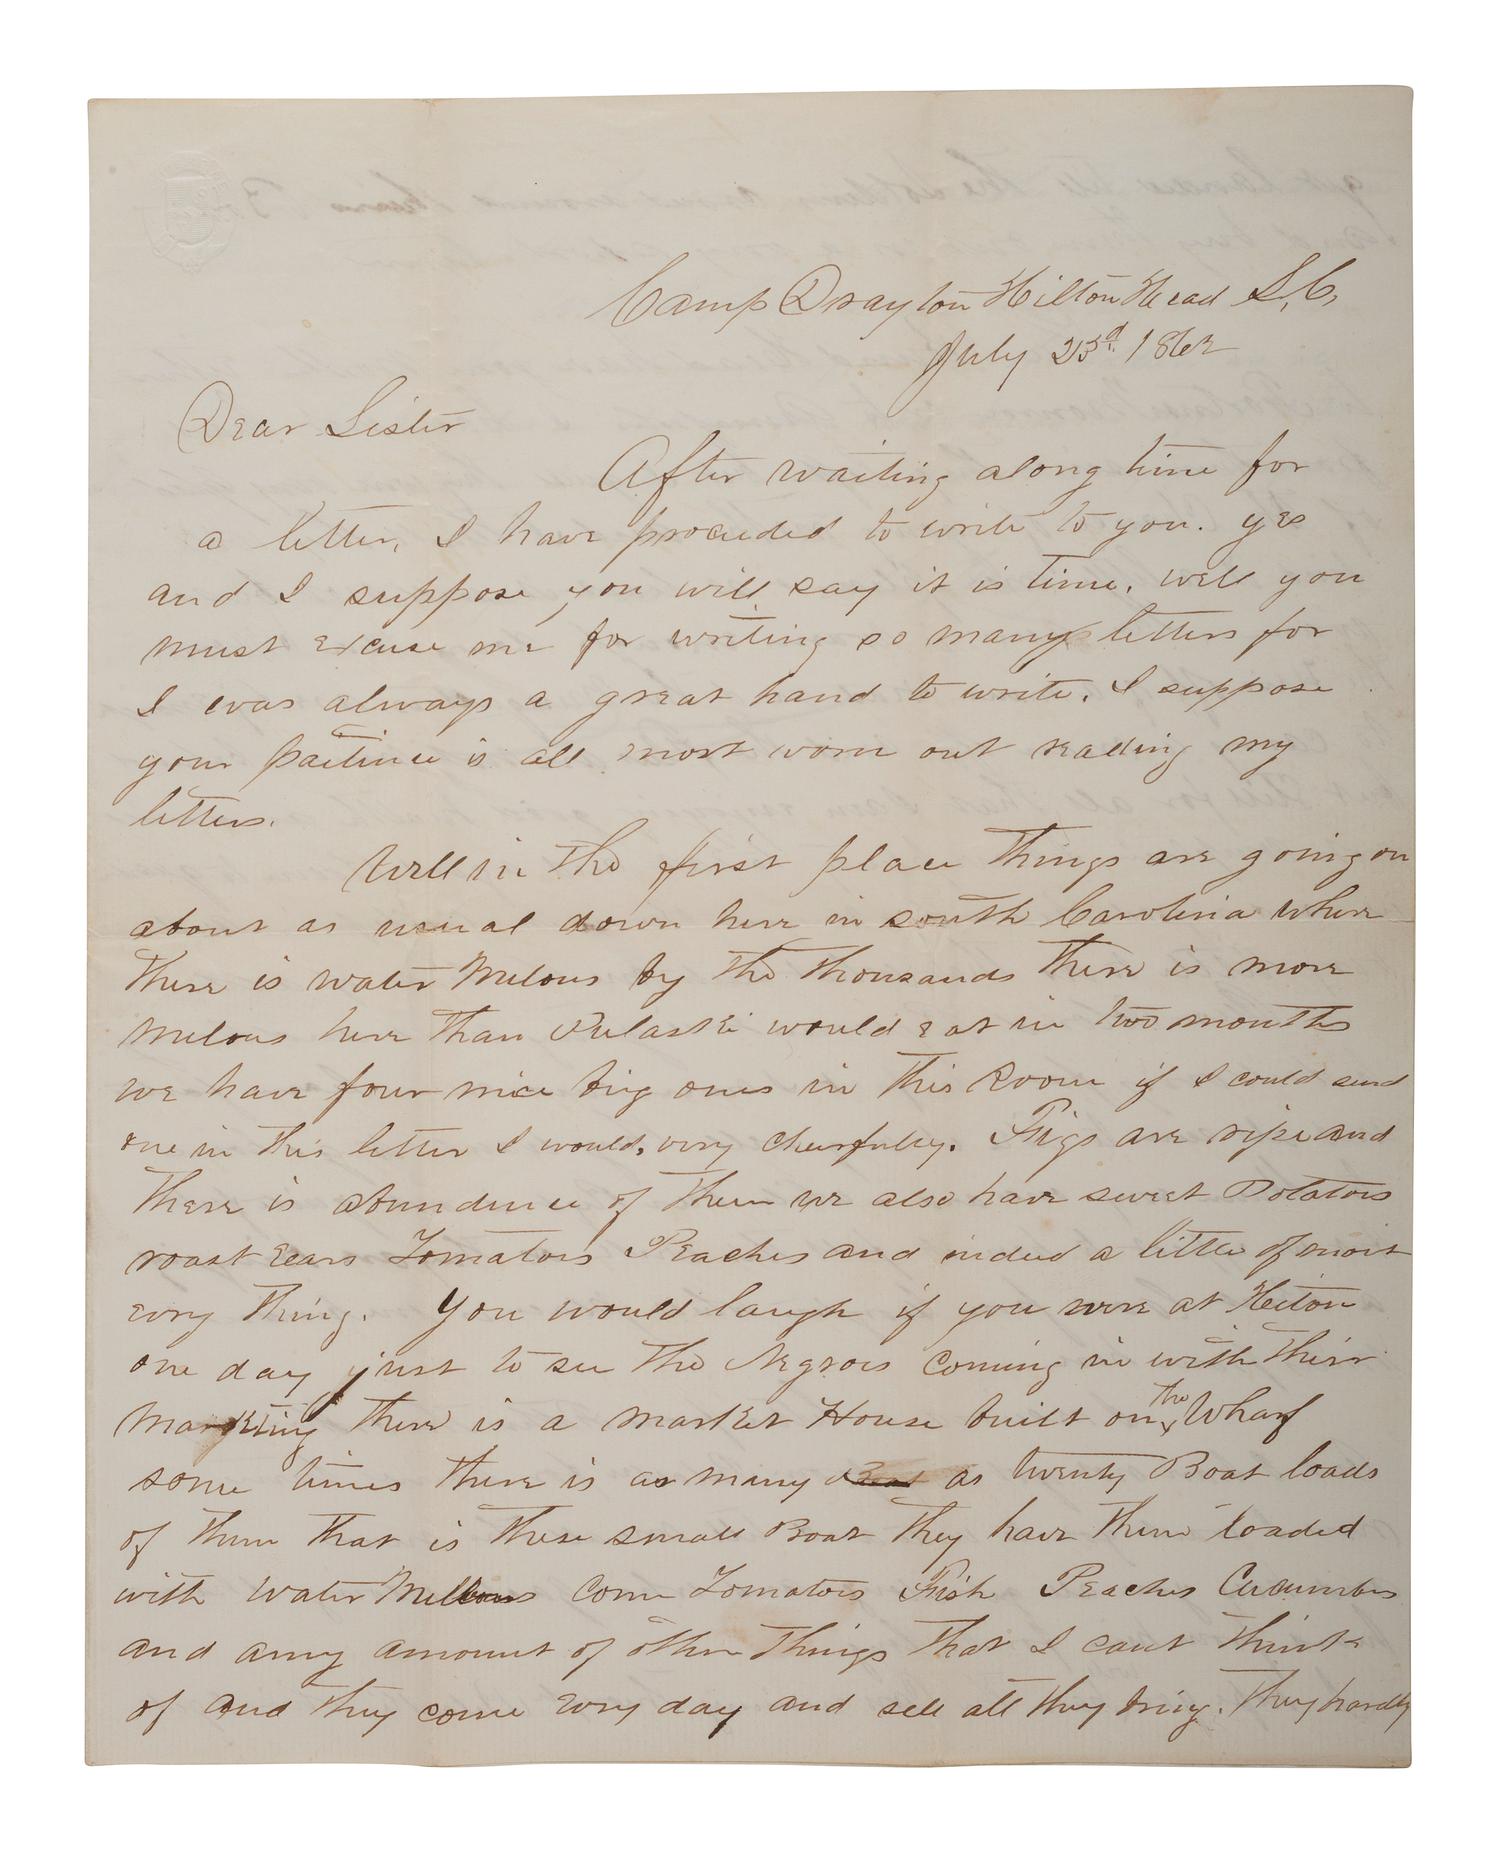 Camp Drayton Hilton Head S,C,
July 23d. 1862
Dear Sister
After waiting along time for
a letter, I have proceeded to write to you. yes
and I suppose you will say it is time. well you
must excuse me for writing so many letters for
I was always a great hand to write. I suppose
your paitince is all most worn out reading my
letters.
Well in the first place things are going on
about as usual down here in south Carolina where
there is water Melons by the thousands there is more
Melons here than Pulaski would eat in two months
we have four nice big ones in this Room if I could send
one in this letter I would, very cheerfuley. Figs are ripe and
there is abundence of them we also have sweet Potatoes
roast Ears Tomatoes Peaches and indeed a little of most
every thing. You would laugh if you were at Hilton
one day just to see the Negroes coming in with their
Marketing there is a market House built on the Wharf
some times there is as many as twenty Boat loads
of them that is these small Boat they have them loaded
with water Mellons Corn Tomatoes Fish Peaches Cucumbers
and anny amount of other things that I cant think
of and they come every day and sell all they bring. They hardly